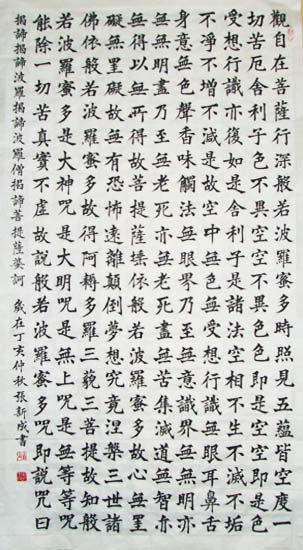 觀自在菩薩行深般若波羅蜜多時照見五蘊皆空度一
切苦厄舍利子色不異空空不異色色即是空空即是色
受想行識亦復如是舍利子是諸法空相不生不滅不垢
不淨不增不減是故空中無色無受想行識無眼耳鼻舌
身意無色聲香味觸法無眼界乃至無意識界無無明亦
無無明盡乃至無老死亦無老死盡無苦集滅道無智亦
無得以無所得故菩提薩埵依般若波羅蜜多故心無罣
礙無罣礙故無有恐怖遠離顛倒夢想究竟涅槃三世諸
佛依般若波羅蜜多故得阿耨多羅三藐三菩提故知般
若波羅蜜多是大神咒是大明咒是無上咒是無等等咒
能除一切苦真實不虛故說般若波羅蜜多咒即說咒曰
揭諦揭諦波羅揭諦波羅僧揭諦菩提薩婆訶 歲在丁亥仲秋張新成書